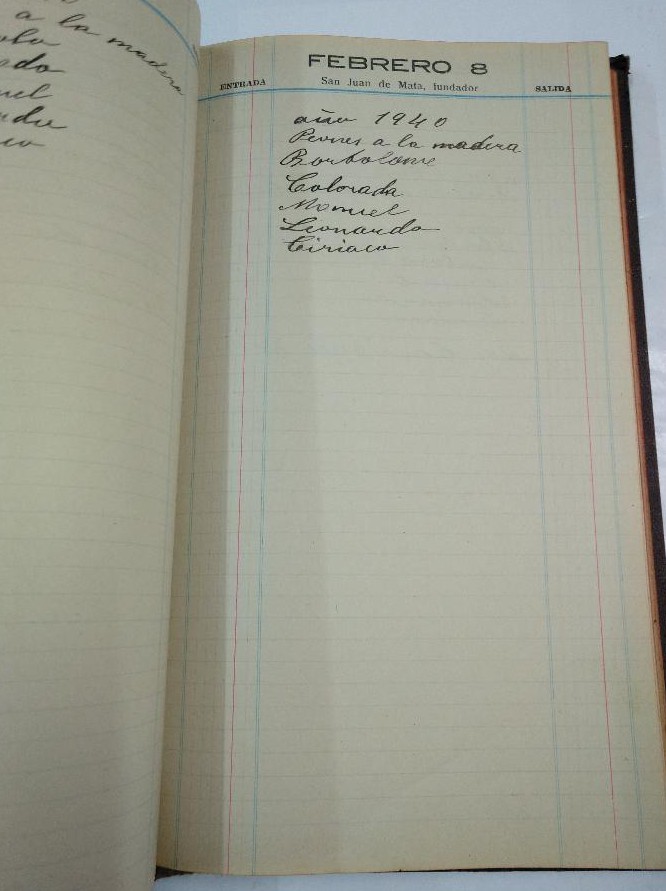 a la madera
FEBRERO 8
ENTRADA San Juan de Mata, fundador SALIDA
año 1940
Peones a la madera
Bortolome
Colorada
Monuel
Leonardo
Ciriaco